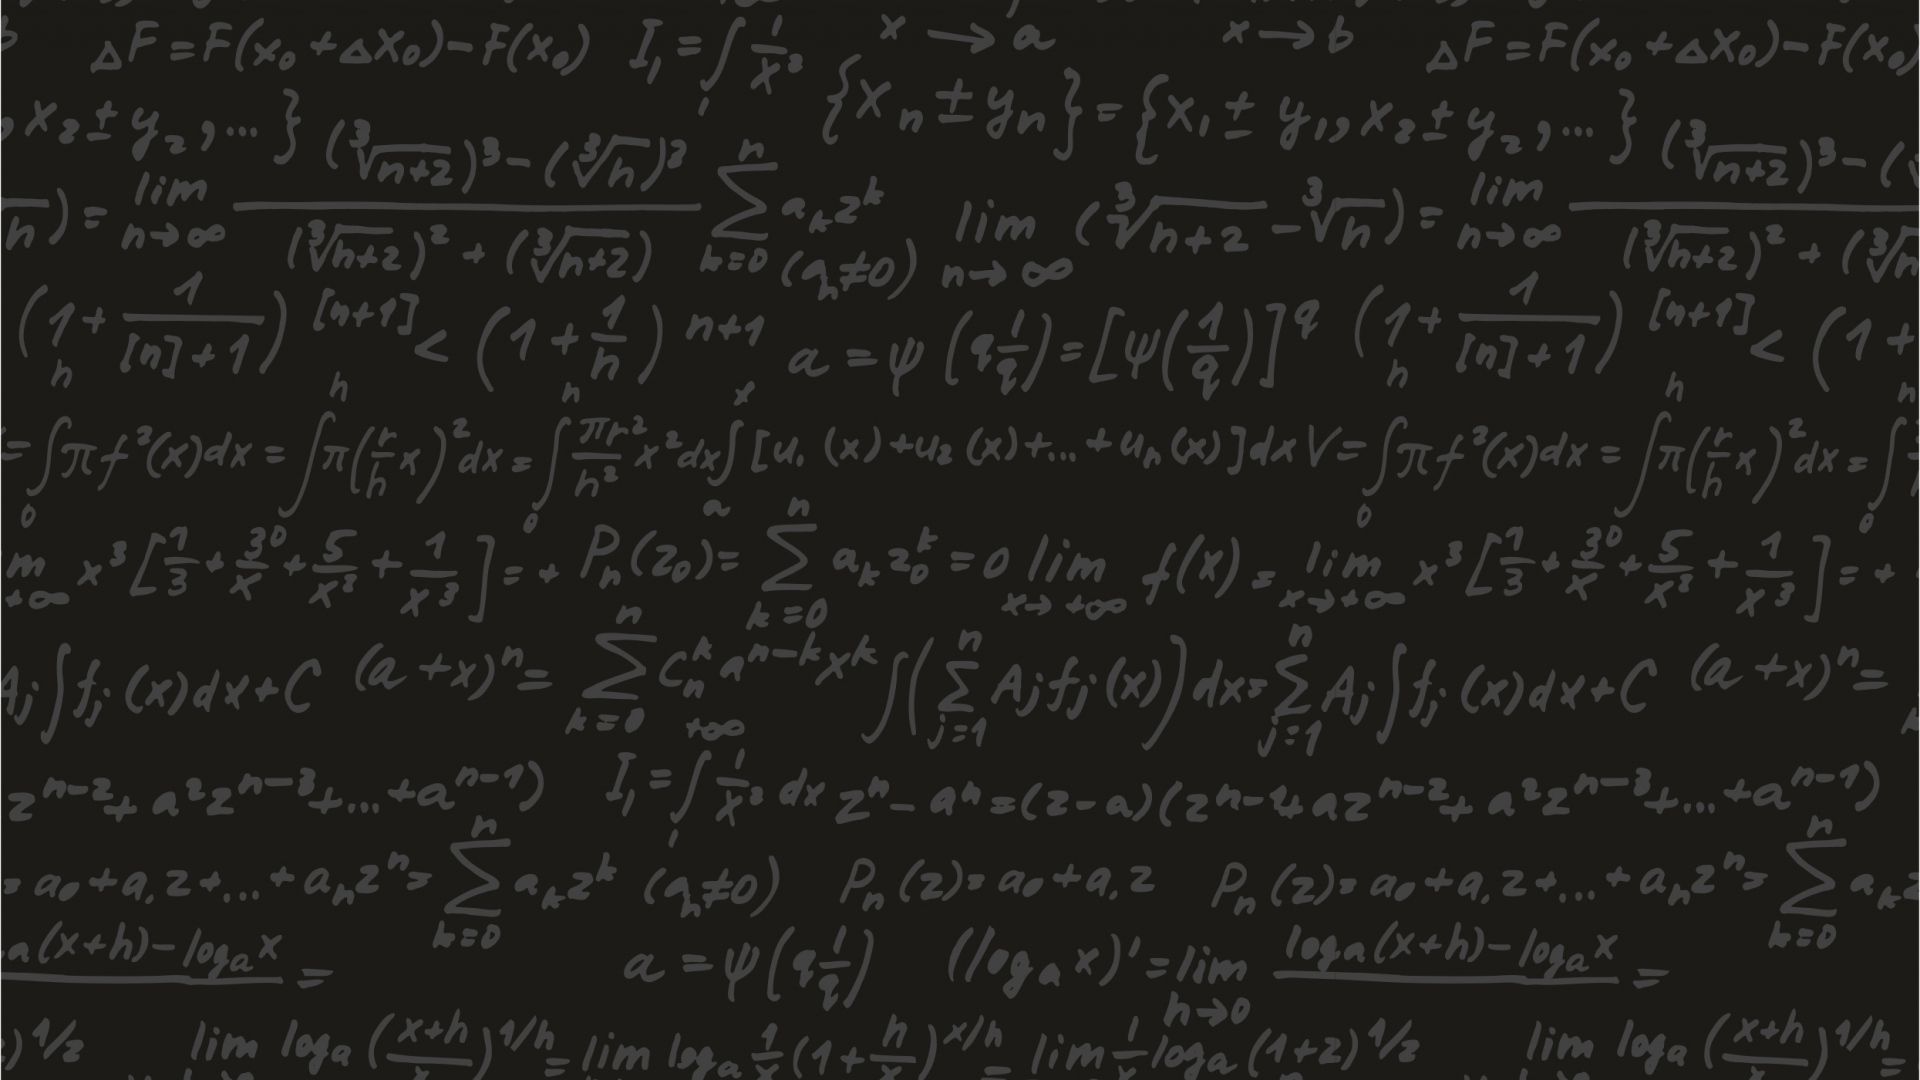 ΔF = F(x₀ + Δx₀) − F(x₀) I₁ = ∫ 1/x³ x → a x → b ΔF = F(x₀ + Δx₀) − F(x₀)
x₂ ± y₂, ... } {xₙ ± yₙ} = {x₁ ± y₁, x₂ ± y₂, ... }
= lim n→∞ ((³√(n+2))³ − (³√n)³) / ((³√(n+2))² + (³√(n+2))) Σ k=0 n aₖzᵏ (aₙ≠0) lim n→∞ (³√(n+2) − ³√n) = lim n→∞ ((³√(n+2))³ −
(1 + 1/([n]+1))[n+1] < (1 + 1/n) n+1 a = ψ(q 1/q) = [ψ(1/q)]^q (1 + 1/([n]+1))[n+1] < (1 +
= ∫ 0 h πf²(x)dx = ∫ h π(r/h x)²dx = ∫ 0 h πr²/h² x²dx ∫ a x [u₁(x) + u₂(x) + ... + uₙ(x)]dx V = ∫ 0 h πf²(x)dx = ∫ h π(r/h x)²dx =
x³[1/3 + 30/x + 5/x² + 1/x³] = + Pₙ(z₀) = Σ k=0 n aₖz₀ᵏ = 0 lim x→+∞ f(x) = lim x→+∞ x³[1/3 + 30/x + 5/x² + 1/x³] = +
Aⱼ∫fⱼ(x)dx + C (a + x)ⁿ = Σ k=0 n Cₙᵏ aⁿ⁻ᵏxᵏ ∫(Σ j=1 n Aⱼfⱼ(x))dx = Σ j=1 n Aⱼ∫fⱼ(x)dx + C (a + x)ⁿ =
zⁿ⁻² + a²zⁿ⁻³ + ... + aⁿ⁻¹) I₁ = ∫ 1 +∞ 1/x³ dx zⁿ − aⁿ = (z − a)(zⁿ⁻¹ + azⁿ⁻² + a²zⁿ⁻³ + ... + aⁿ⁻¹)
= a₀ + a₁z + ... + aₙzⁿ = Σ k=0 n aₖzᵏ (aₙ≠0) Pₙ(z) = a₀ + a₁z Pₙ(z) = a₀ + a₁z + ... + aₙzⁿ = Σ k=0 n aₖz
a(x+h) − logₐx = a = ψ(q 1/q) (logₐx)' = lim h→0 (logₐ(x+h) − logₐx) =
)1/2 lim logₐ((x+h)/x)1/h = lim logₐ 1/x (1 + h/x)x/h = lim 1/x logₐ(1+z)1/2 lim logₐ((x+h)/x)1/h =